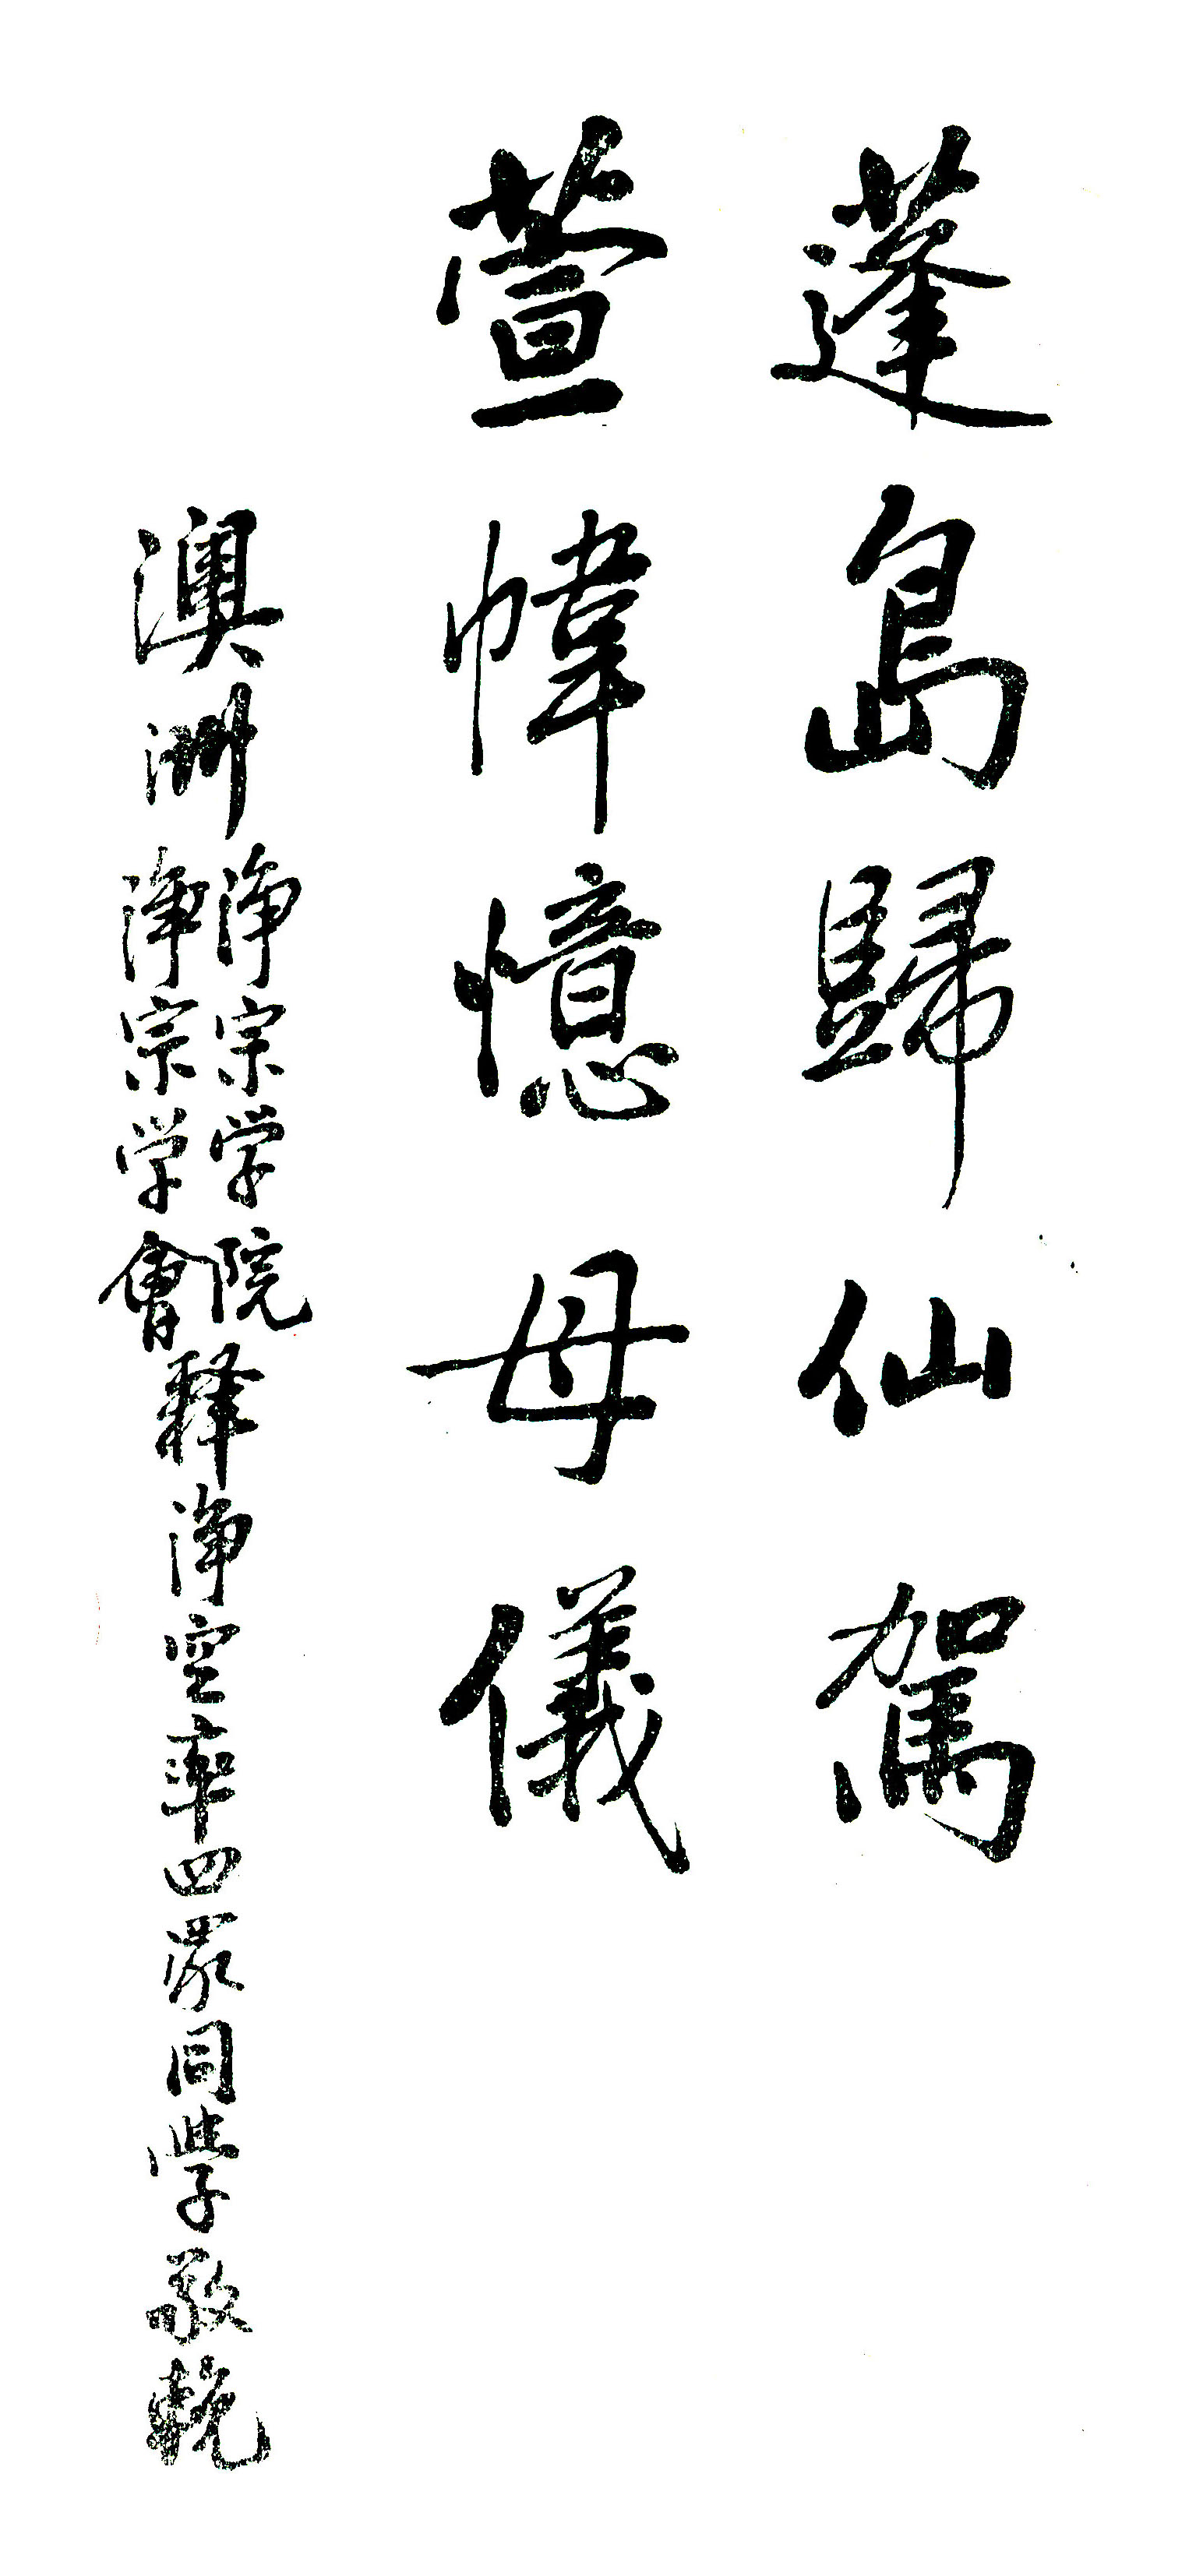 蓬島歸仙駕
萱幃憶母儀
澳洲
净宗学院
净宗学會
释净空率四眾同學敬輓